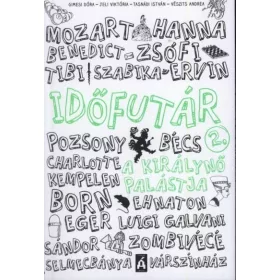 GIMESI DÓRA - JELI VIKTÓRIA - TASNÁDI ISTVÁN - VÉSZITS ANDREA
MOZART HANNA
BENEDICT ZSÓFI
TIBI SZABIKA ERVIN
IDŐFUTÁR
POZSONY BÉCS 2.
CHARLOTTE A KIRÁLYNŐ
KEMPELEN PALÁSTJA
BORN EHNATON
EGER LUIGI GALVANI
SÁNDOR ZOMBIVÉCÉ
SELMECBÁNYA Á VÁRSZÍNHÁZ